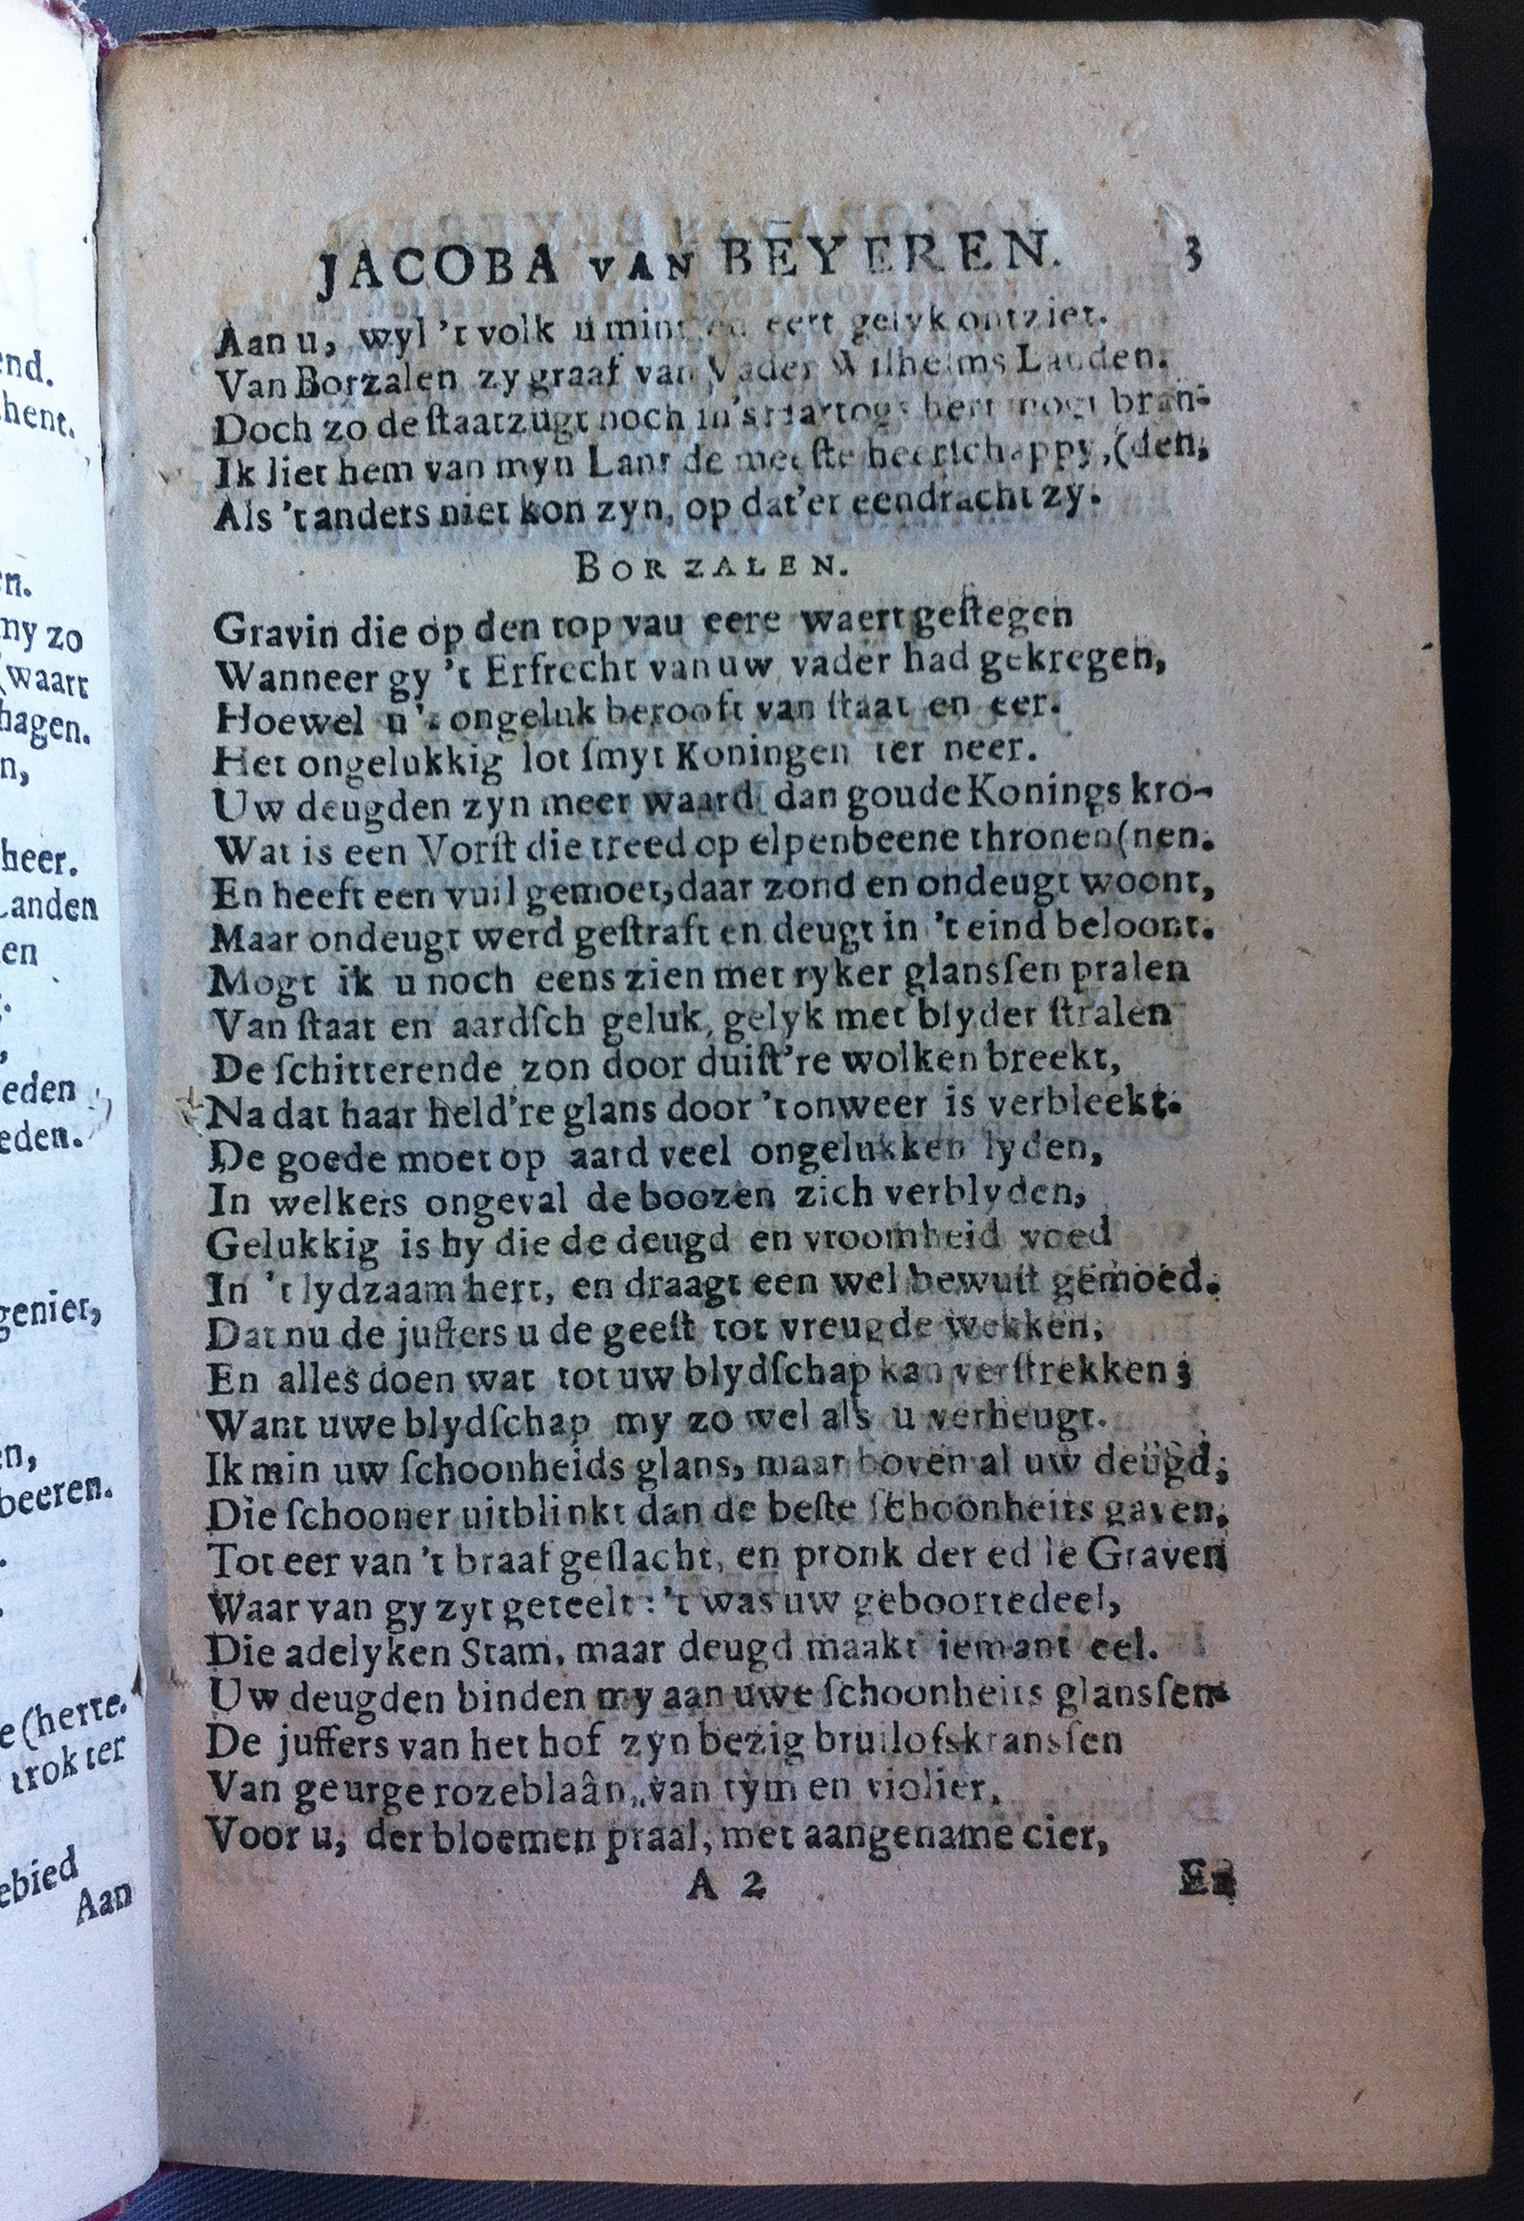 JACOBA VAN BEYEREN. 3
Aan u, wyl 't volk u mint en eert gelyk ontziet.
Van Borzalen zy graaf van Vader Wilhelms Landen.
Doch zo de ſtaatzugt noch in 's Hartogs hert mogt bran-
Ik liet hem van myn Lant de meeſte heerſchappy, (den,
Als 't anders niet kon zyn, op dat'er eendracht zy.
BORZALEN.
Gravin die op den top vau eere waert geſtegen
Wanneer gy 't Erfrecht van uw vader had gekregen,
Hoewel u 't ongeluk berooft van ſtaat en eer.
Het ongelukkig lot ſmyt Koningen ter neer.
Uw deugden zyn meer waard dan goude Konings kro-
Wat is een Vorſt die treed op elpenbeene thronen (nen.
En heeft een vuil gemoet, daar zond en ondeugt woont,
Maar ondeugt werd geſtraft en deugt in 't eind beloont.
Mogt ik u noch eens zien met ryker glansſen pralen
Van ſtaat en aardſch geluk, gelyk met blyder ſtralen
De ſchitterende zon door duiſt're wolken breekt,
Na dat haar held're glans door 't onweer is verbleekt.
De goede moet op aard veel ongelukken lyden,
In welkers ongeval de boozen zich verblyden,
Gelukkig is hy die de deugd en vroomheid voed
In 't lydzaam hert, en draagt een wel bewuſt gemoed.
Dat nu de juffers u de geeſt tot vreugde wekken,
En alles doen wat tot uw blydſchap kan verſtrekken;
Want uwe blydſchap my zo wel als u verheugt.
Ik min uw ſchoonheids glans, maar boven al uw deugd;
Die ſchooner uitblinkt dan de beſte ſchoonheits gaven,
Tot eer van 't braaf geſlacht, en pronk der ed'le Graven
Waar van gy zyt geteelt: 't was uw geboortedeel,
Die adelyken Stam, maar deugd maakt iemant eel.
Uw deugden binden my aan uwe ſchoonheits glansſen.
De juffers van het hof zyn bezig bruilofskransſen
Van geurge rozeblaân, van tym en violier,
Voor u, der bloemen praal, met aangename cier,
A 2 En
nd.
hent.
n.
my zo
(waart
hagen.
n,
heer.
Landen
en
eden
eden.
geniet,
n,
beeren.
e (herte.
trok ter
ebied
Aan